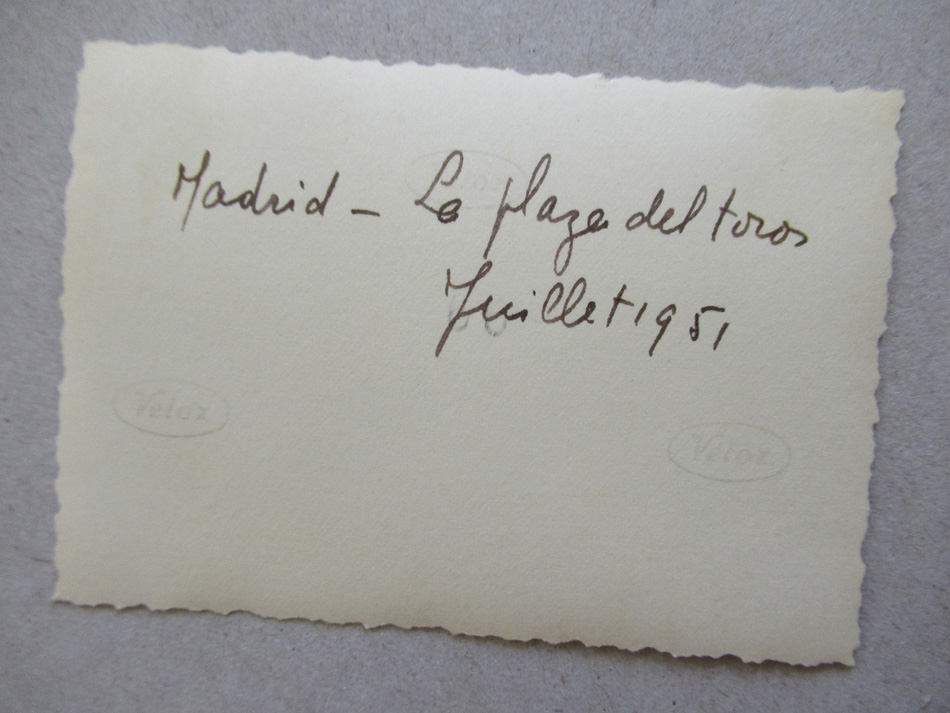 Madrid - La plaza del toros
Juillet 1951
Velox
Velox